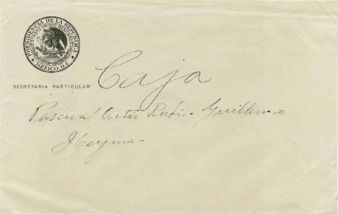 PRESIDENCIA DE LA REPUBLICA
MEXICO, D.F.
SECRETARIA PARTICULAR
Caja
Pascual Ortiz Rubio - Guillermo